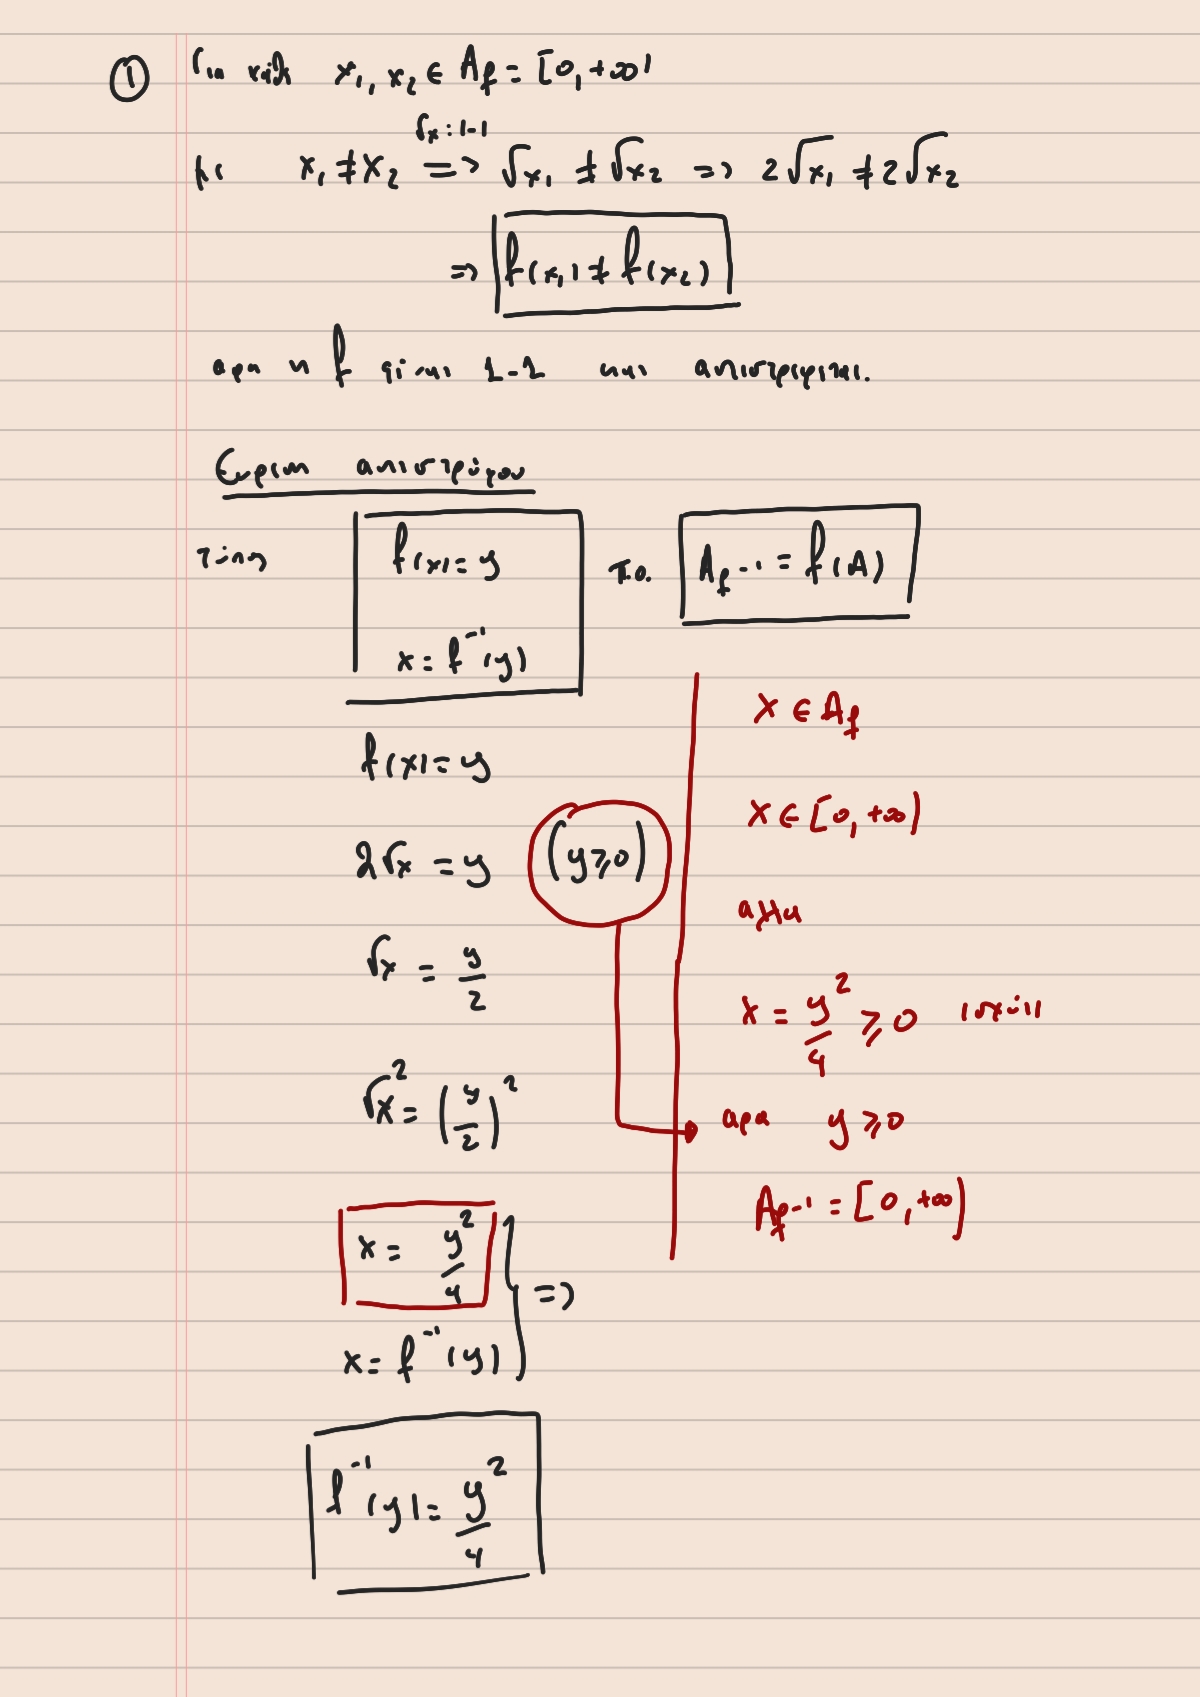 ① Για κάθε x₁, x₂ ∈ A_f = [0, +∞)
√x : 1-1
με x₁ ≠ x₂ ⟹ √x₁ ≠ √x₂ ⟹ 2√x₁ ≠ 2√x₂
⟹ f(x₁) ≠ f(x₂)
αρα η f είναι 1-1 και αντιστρέφεται.
Εύρεση αντιστρόφου
f(x) = y Π.Ο. A_f⁻¹ = f(A)
x = f⁻¹(y)
f(x) = y
2√x = y (y ⩾ 0)
√x = y/2
√x² = (y/2)²
x = y²/4
x = f⁻¹(y) } ⟹
f⁻¹(y) = y²/4
x ∈ A_f
x ∈ [0, +∞)
αλλά
x = y²/4 ⩾ 0 ισχύει
αρα y ⩾ 0
A_f⁻¹ = [0, +∞)